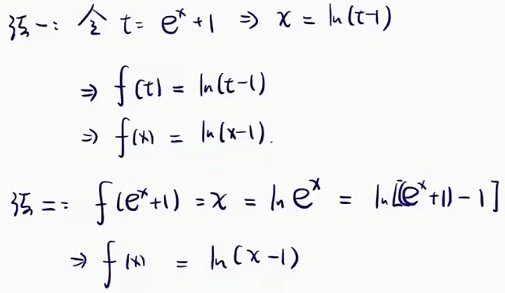 法一: 令 t = e^x + 1 ⇒ x = ln(t-1)
⇒ f(t) = ln(t-1)
⇒ f(x) = ln(x-1).
法二: f(e^x+1) = x = ln e^x = ln[(e^x+1)-1]
⇒ f(x) = ln(x-1)